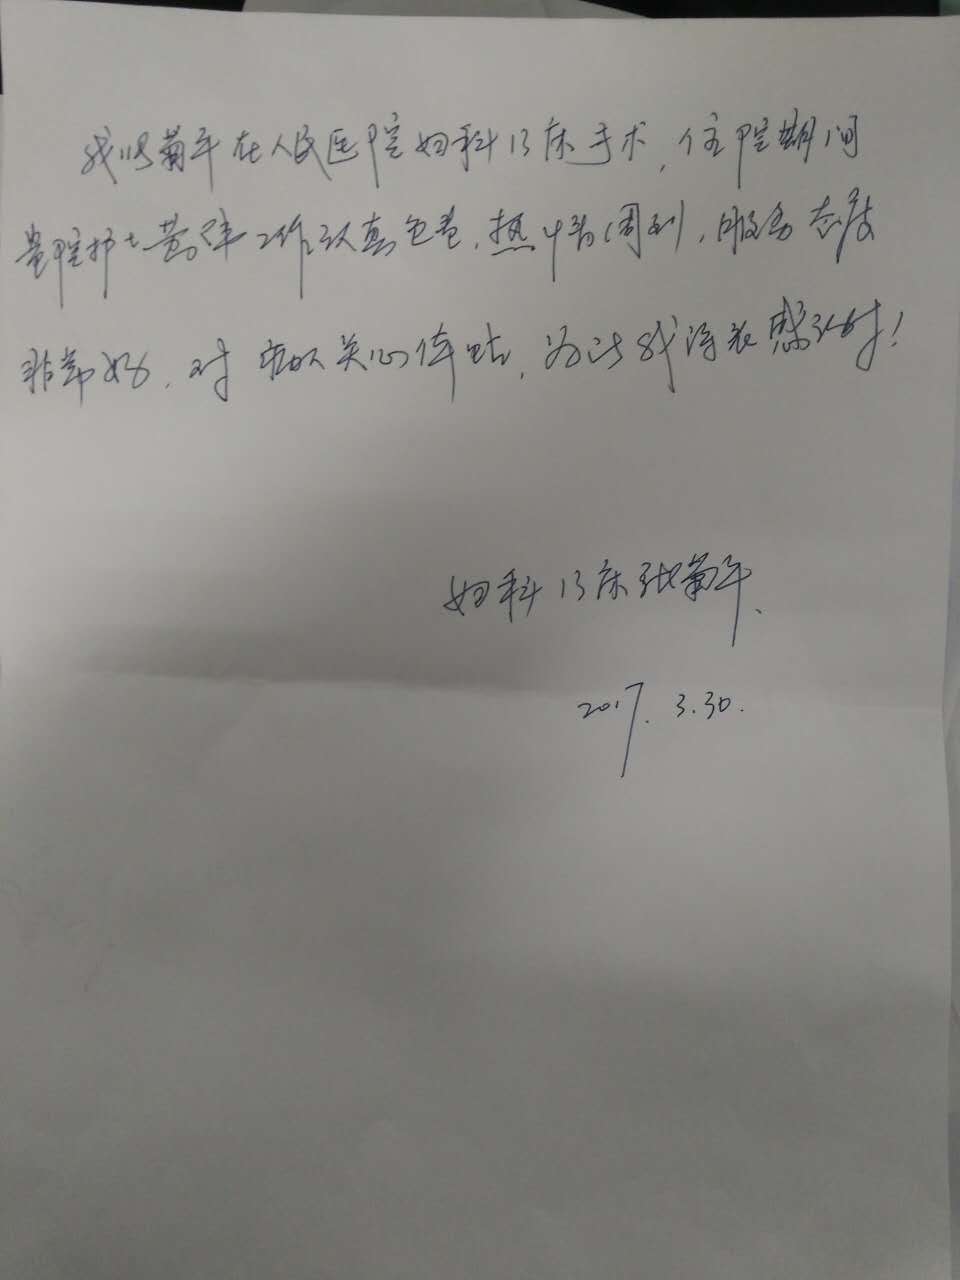 我叫菊平在人民医院妇科13床手术,住院期间
护士黄萍工作认真负责,热情周到,服务态度
非常好,对病人关心体贴,为此我深表感谢!
妇科13床张菊平、
2017.3.30.